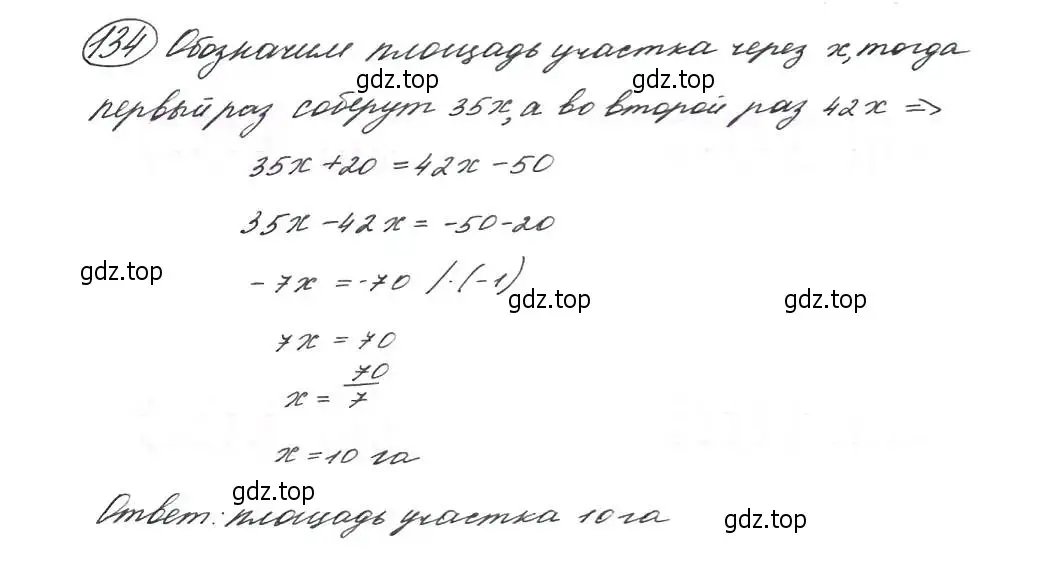 134 Обозначим площадь участка через x, тогда
gdz.top
gdz.top
первый раз соберут 35x, а во второй раз 42x ⇒
35x + 20 = 42x - 50
35x - 42x = -50 - 20
gdz.top
-7x = -70 / · (-1)
gdz.top
gdz.top
7x = 70
x = 70/7
x = 10 га
gdz.top
Ответ: площадь участка 10 га
gdz.top